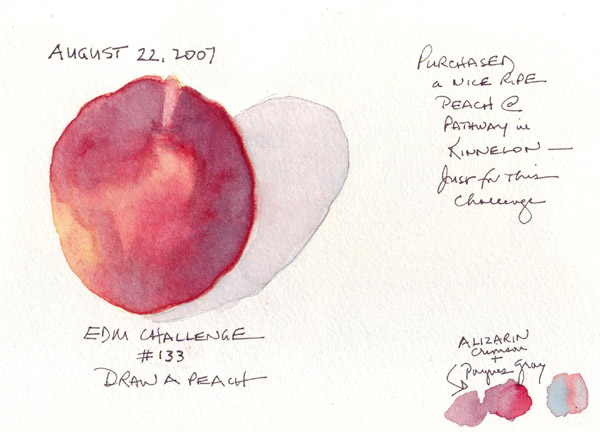 AUGUST 22, 2007
PURCHASED
a NICE RIPE
PEACH @
PATHWAY in
KINNELON —
Just for this
Challenge
EDM CHALLENGE
#133
DRAW A PEACH
ALIZARIN
Crimson
+
Paynes Gray